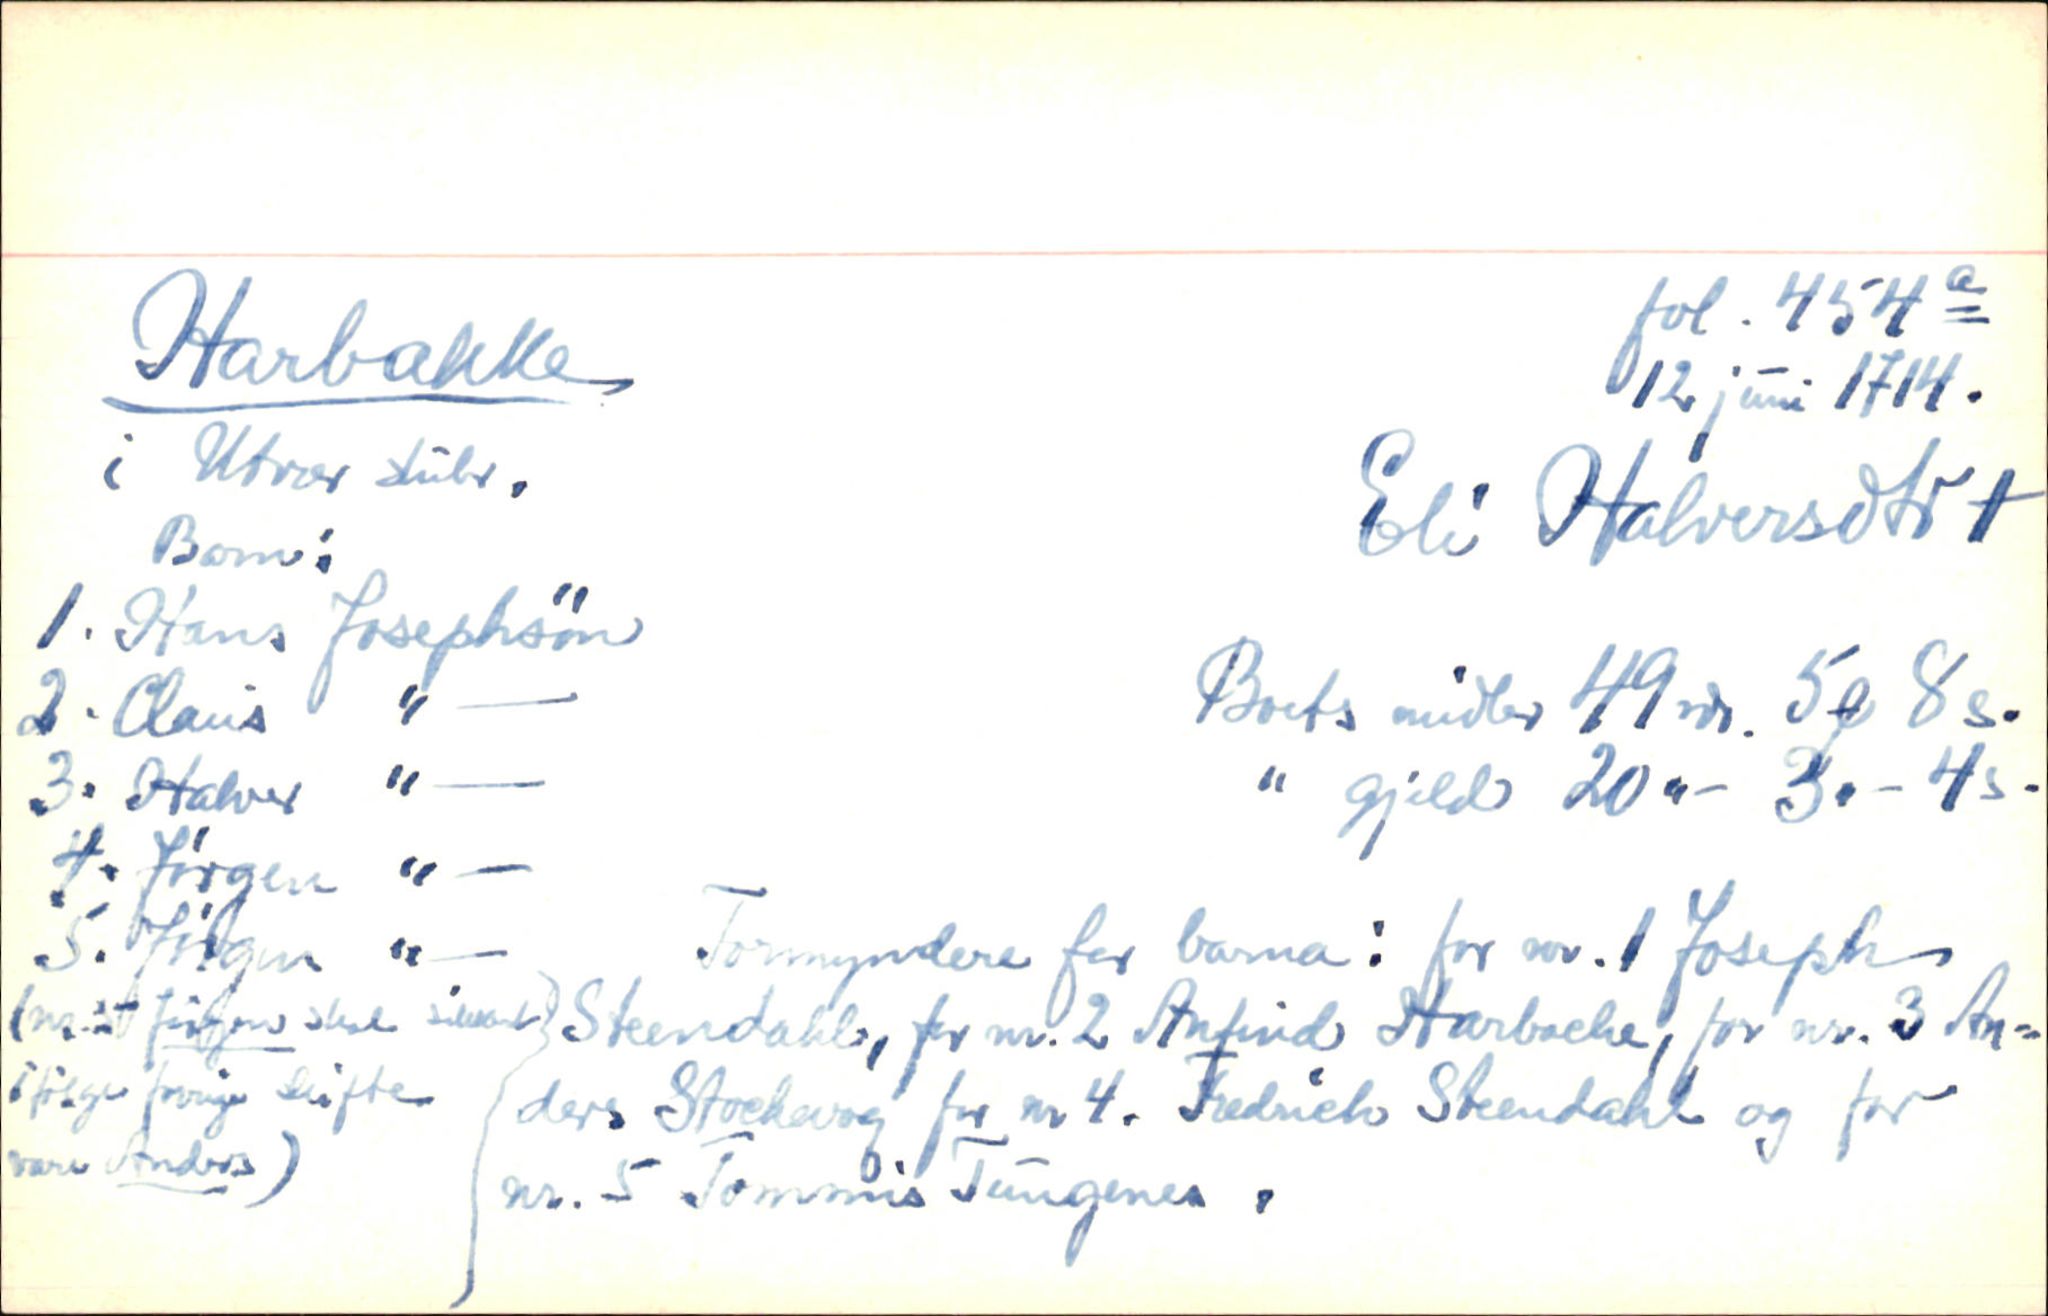 Harbakke
fol. 454a
12 juni 1714.
i Utvær skibr.
Eli Halversdtr †
Barn:
1. Hans Josephsön
2. Claus " —
3. Halver " —
4. Jörgen " —
5. Jörgen " —
(nr. 5 Jörgen skal
i fölge forrige skifte
være Anders)
Boets midler 49 rdr. 5 8 s.
" gjeld 20 "- 3 "- 4 s.
Formyndere for barna: for nr. 1 Joseph
Steendahl, for nr. 2 Anfind Harbacke, for nr. 3 An=
ders Stockevog for nr 4. Fredrich Steendahl og for
nr. 5 Tommis Tungenes.